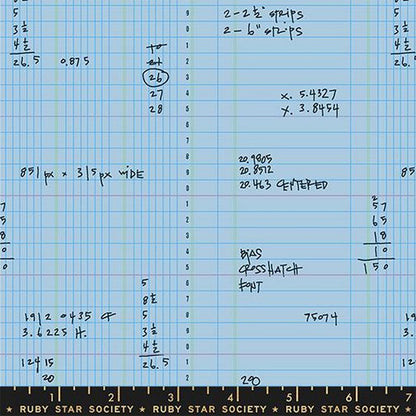 5
3 ½
4 ½
26.5 0.875
2 - 2 ½" strips
2 - 6" strips
26
27
28
X. 5.4327
Y. 3.8454
851px x 315px WIDE
20.9805
20.8512
20.463 CENTERED
2
57
65
18
10
150
BIAS
CROSSHATCH
FONT
5
8 ½
5
3 ½
4 ½
26.5
1912 0435 CF
3.6225 H.
12415
20
75074
290
1 2 3 4 5 6
★ RUBY STAR SOCIETY ★ ★ RUBY STAR SOCIETY ★ ★ RUBY STAR SOCIETY ★